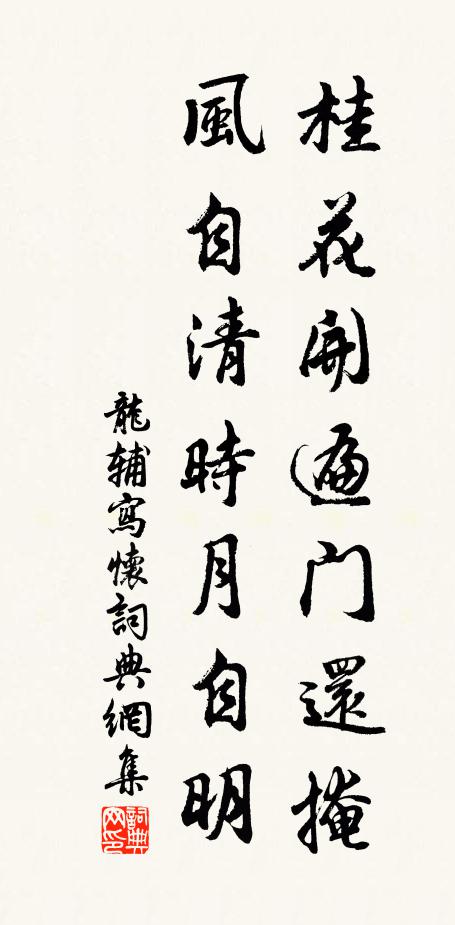 桂花開遍門還掩
風自清時月自明
龍輔寫懷詞典網集
詞典網印